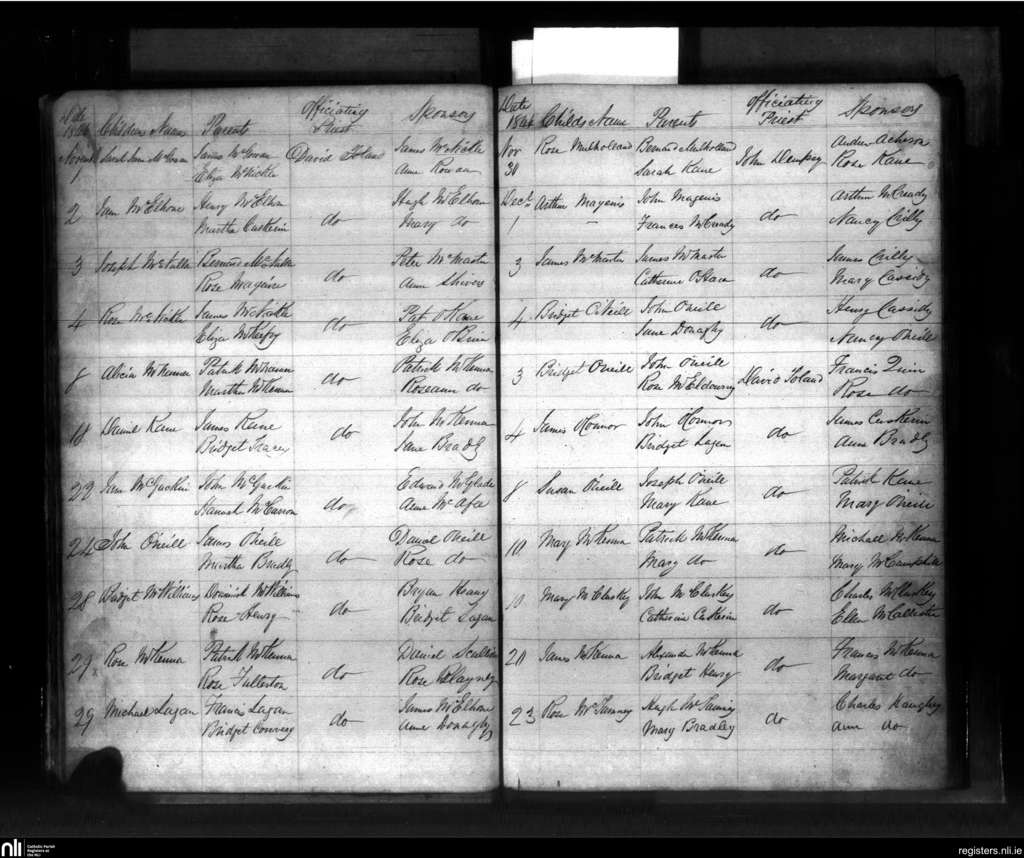 Date Officiating
1844 Childrens Name Parents Priest Sponsors
November Sarah Jane McGowan James McGowan David Toland James McNickle
1 Eliza McNickle Anne Rowan
2 Jam McElhone Henry McElhon do Hugh McElhom
Martha Cuskerin Mary do
3 Joseph McAtulla Bernard McAtulla do Peter McMaster
Rose Maguire Ann Shivers
4 Rose McNickle James McNickle do Pat OKane
Eliza Eliza OBrin
8 Alicia McKenna Patrick McKenna do Patrick McKenna
Martha McKenna Roseann do
18 Daniel Kane James Kane do John McKenna
Bridget Tracey Jane Bradly
23 McGuckin John McGuckin do Edward McGlade
Hannah McCarron Anne McAfa
24 John O'neill James O'neill do Daniel O'neill
Martha Bradly Rose do
28 Bridget McWilliams Dominick McWilliams do Bryan
Rose Henry Bridget Lagan
29 Rose McKenna Patrick McKenna do Daniel Scullion
Rose Fullerton Rose
29 Michael Lagan Francis Lagan do James McElhone
Bridget Convery Anne Donaghy
Date Officiating
1844 Childs Name Parents Priest Sponsors
Nov Rose Mulholland Bernard Mulholland John Dempsy Andrew Acheson
30 Sarah Kane Rose Kane
Decr Arthur Magenis John Magenis do Arthur McCready
1 Frances McCready Nancy Crilly
3 James McMaster James McMaster do James Crilly
Catherine O'Hara Mary Cassidy
4 Bridget O'Neill John O'neill do Henry Cassidy
Jane Donaghy Nancy O'neill
3 Bridget O'neill John O'neill David Toland Francis Quin
Rose McEldowny Rose do
4 James O'Connor John O'Connor do James Cuskerin
Bridget Lagan Anne Bradly
8 Susan O'neill Joseph O'neill do Patrick Kane
Mary Kane Mary O'neill
10 Mary McKenna Patrick McKenna do Michall McKenna
Mary do Mary McCampbill
10 Mary McCluskey John McCluskey do Charles McCluskey
Catherin Cuskerin Ellen McCallister
20 James McKenna Alexander McKenna do Frances McKenna
Bridget Henry Margaret do
23 Rose Hugh do Charles Haughey
Mary Bradley Ann do
nli Catholic Parish
Registers at
the NLI
registers.nli.ie